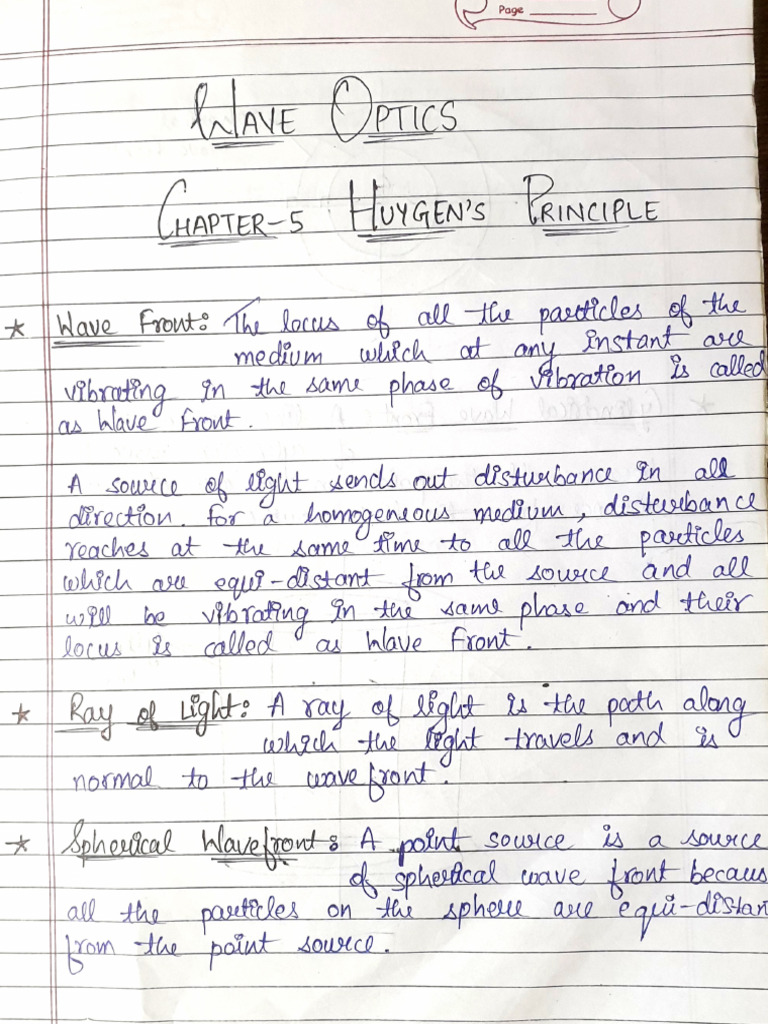 Page
WAVE OPTICS
CHAPTER-5 HUYGEN'S PRINCIPLE
* Wave Front: The locus of all the particles of the
medium which at any instant are
vibrating in the same phase of vibration is called
as Wave Front.
A source of light sends out disturbance in all
direction. For a homogeneous medium, disturbance
reaches at the same time to all the particles
which are equi-distant from the source and all
will be vibrating in the same phase and their
locus is called as Wave Front.
* Ray of Light: A ray of light is the path along
which the light travels and is
normal to the wavefront.
* Spherical Wavefront: A point source is a source
of spherical wave front becaus
all the particles on the sphere are equi-distan
from the point source.